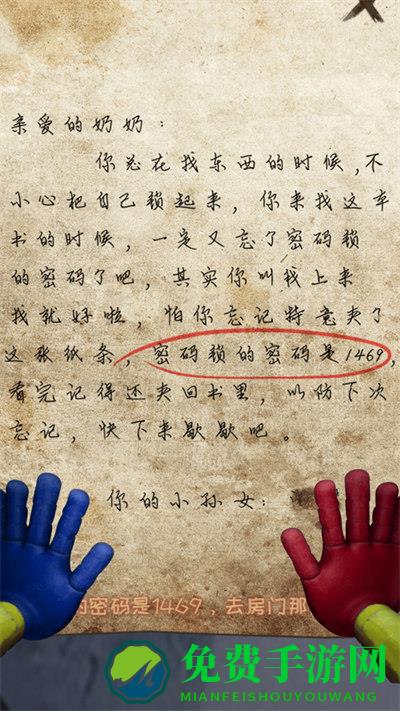 亲爱的奶奶：
你总在找东西的时候，不
小心把自己锁起来，你来找这本
书的时候，一定又忘了密码锁
的密码了吧，其实你叫我上来
找就好啦，怕你忘记特意夹了
这张纸条，密码锁的密码是1469，
看完记得还夹回书里，以防下次
忘记，快下来歇歇吧。
你的小孙女：
的密码是1469，去房门那
免费手游网
MIANFEISHOUYOUWANG